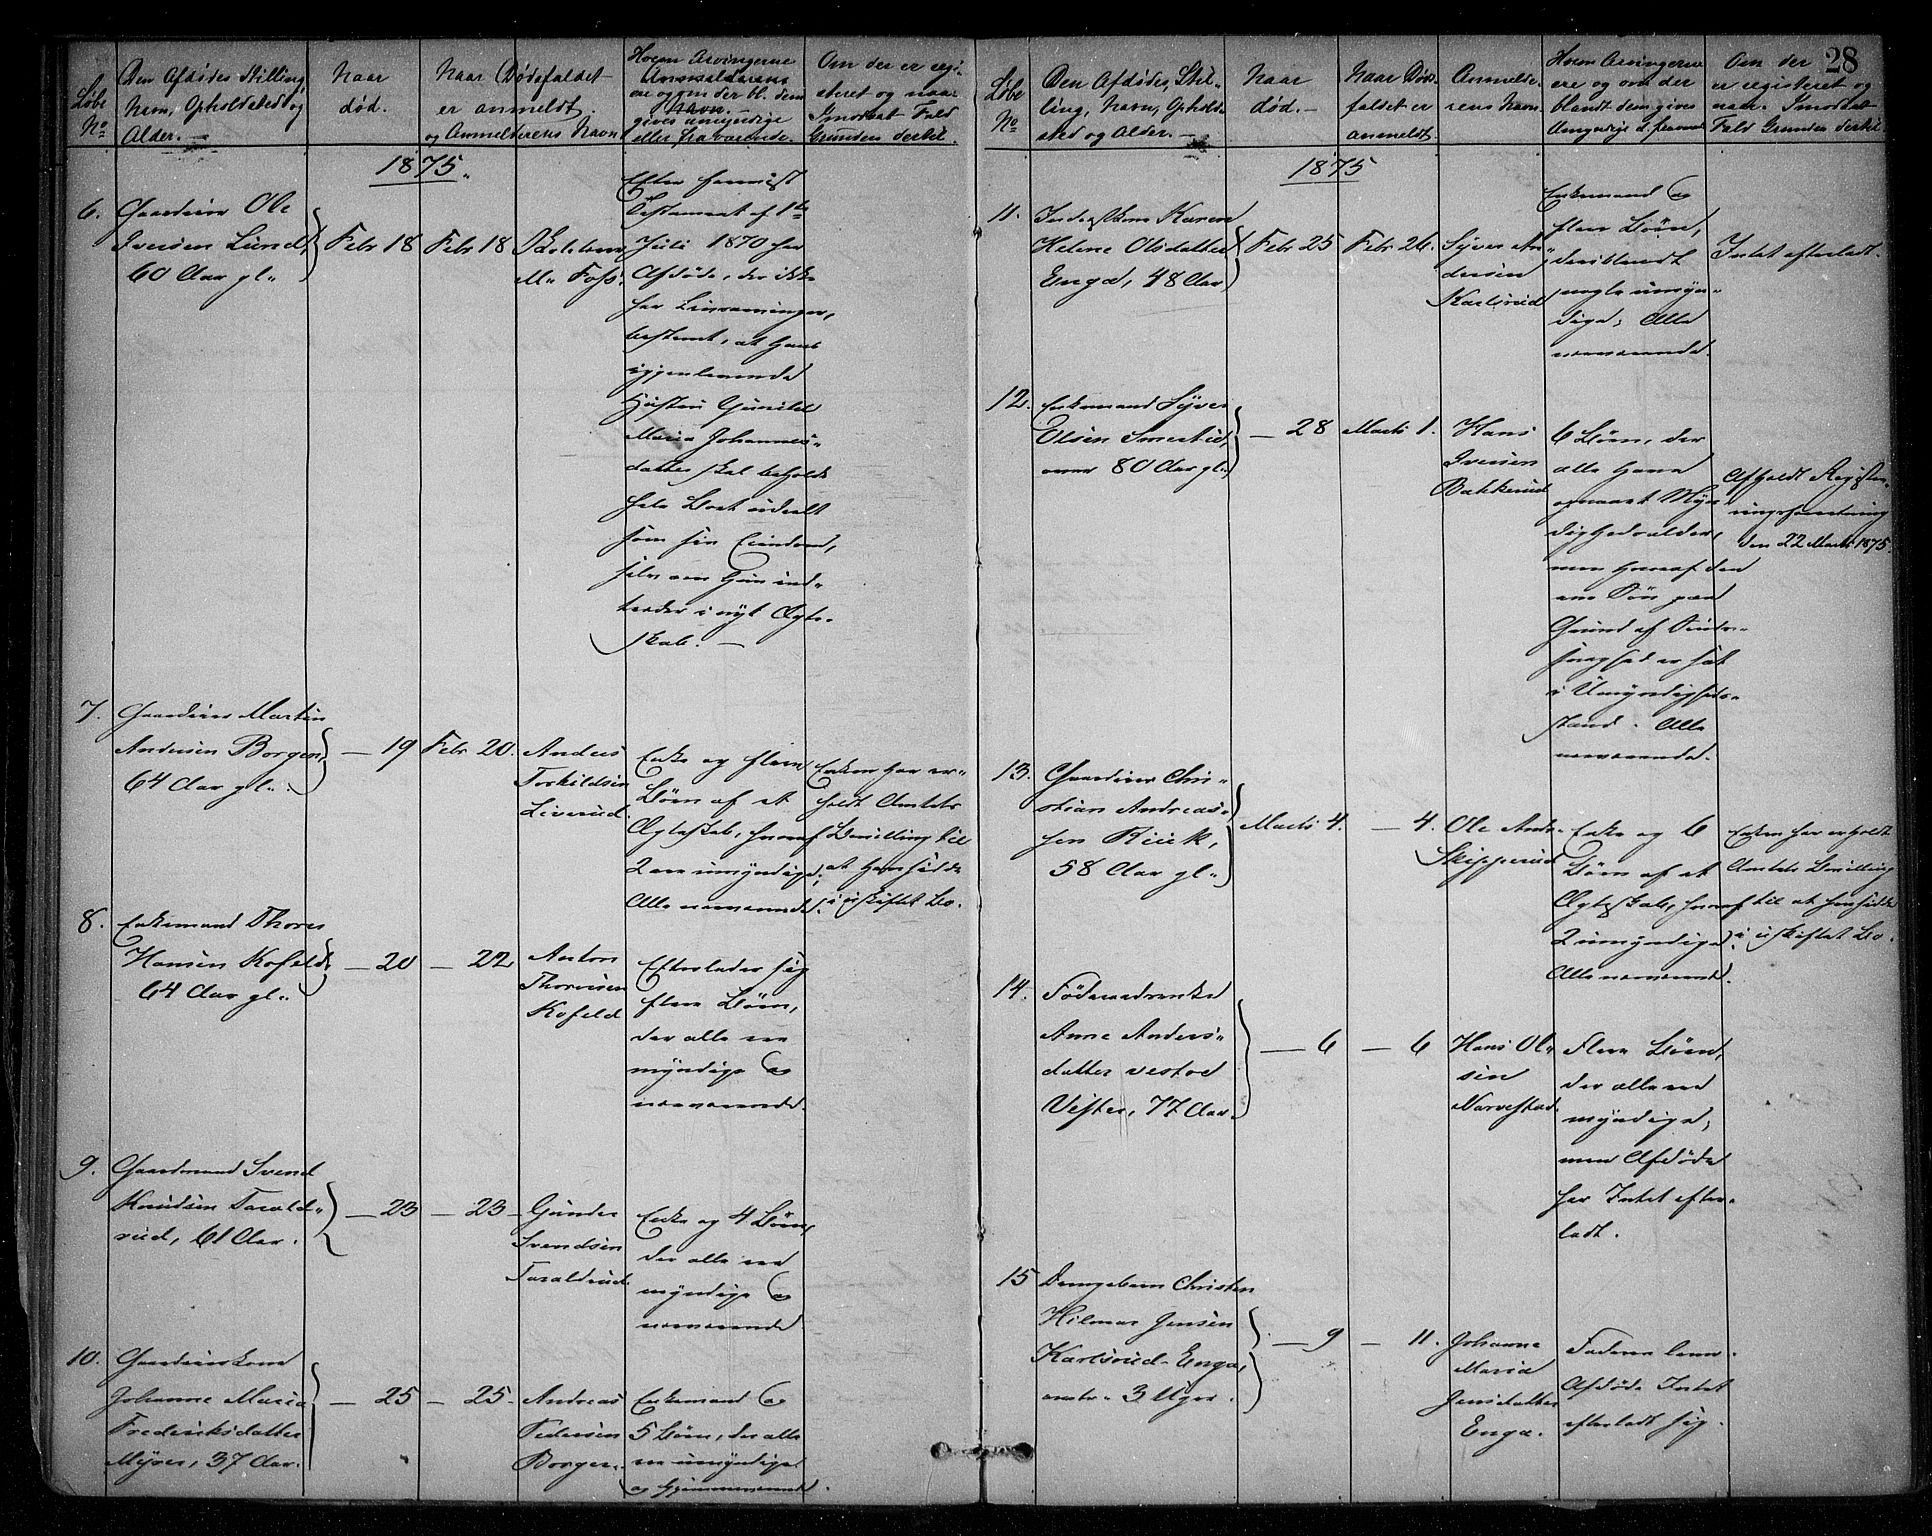 28
Løbe
No
Den Afdødes Stilling,
Navn, Opholdsted og
Alder.
Naar
død.
Naar Dødsfaldet
er anmeldt
og Anmelderens Navn
Hvem Arvingerne
ere og om der bl. dem
gives umyndige
eller fraværende.
Om der er regi-
streret og naar.
I modsat Fald
Grunden dertil.
1875.
6.
Gaardeier Ole
Iversen Lund,
60 Aar gl.
Febr 18
Febr 18
M. Foss.
Efter
Testament af 1ste
Juli 1870 har
Afdøde, der ikke
har Livsarvinger,
bestemt, at hans
igjenlevende
Hustru Gunild
Maria Johannes-
datter skal beholde
hele Boet udeelt
som sin Eiendom,
selv om hun ind-
træder i nyt Ægte-
skab. —
7.
Gaardeier Martin
Andersen Borgen,
64 Aar gl.
— 19
Febr 20.
Anders
Torkildsen
Liverud.
Enke og flere
Børn af et
Ægteskab, hvoraf
2 ere umyndige;
Alle nærværende.
Enken har er-
holdt Amtets
Bevilling til
at hensidde
i uskiftet Bo.
8.
Enkemand Thorer
Hansen Kofeld
64 Aar gl.
— 20
— 22
Anton
Thoresen
Kofeld
Efterlader sig
flere Børn,
der alle ere
myndige og
nærværende.
9.
Gaardmand Svend
Knudsen Tarald-
rud, 61 Aar.
— 23
— 23
Gunder
Svendsen
Taraldrud.
Enke og 4 Børn,
der alle ere
myndige og
nærværende.
10.
Gaardeierskone
Johanne Maria
Frederiksdatter
Myrer, 37 Aar.
— 25
— 25
Andreas
Pedersen
Borgen.
Enkemand og
5 Børn, der alle
ere umyndige
og hjemmeværende.
Løbe
No
Den Afdødes Stil-
ling, Navn, Ophold-
sted og Alder. —
Naar
død. —
Naar Døds-
faldet er
anmeldt
Anmelde-
rens Navn
Hvem Arvingerne
ere og om der
blandt dem gives
Umyndige el. fravær.
Om der
er registreret og
naar. I modsat
Fald Grunden dertil
1875
11.
Inderstkone Karen
Helene Olsdatter
Enga, 48 Aar
Febr 25
Febr 26.
Syver An-
dersen
Karlsrud
Enkemand og
flere Børn,
deriblandt
nogle umyn-
dige; Alle
nærværende.
Intet efterladt.
12.
Enkemand Syver
Olsen Smestad,
over 80 Aar gl.
— 28
Marts 1.
Hans
Iversen
Bakkerud
6 Børn, der
alle have
opnaaet Myn-
dighedsalder,
men hvoraf den
ene Søn paa
Grund af Sinds-
svaghed er sat
i Umyndigheds-
stand. Alle
nærværende.
Afholdt Registre-
ringsforretning
den 22 Marts 1875.
13.
Gaardeier Chri-
stian Andreas-
sen Kiiik,
58 Aar gl.
Marts 4.
— 4.
Ole Andr.
Skipperud
Enke og 6
Børn af et
Ægteskab, hvoraf
2 umyndige;
Alle nærværende.
Enken har erholdt
Amtets Bevilling
til at hensidde
i uskiftet Bo.
14.
Føderaadsenke
Anne Anders-
datter vestad
Vester, 77 Aar.
— 6
— 6
Hans Ol-
sen
Narvestad.
Flere Børn,
der alle ere
myndige,
men Afdøde
har Intet efter-
ladt.
15
Drengebarn Christen
Hilmar Jensen
Karlsrud-Enga,
3 Uger.
— 9
— 11.
Johanne
Maria
Jensdatter
Enga.
Faderen lever.
Afdøde Intet
efterladt sig.